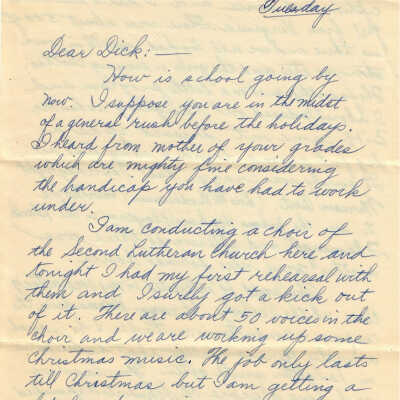 Tuesday
Dear Dick:—
How is school going by
now. I suppose you are in the midst
of a general rush before the holidays.
I heard from mother of your grades
which are mighty fine considering
the handicap you have had to work
under.
I am conducting a choir of
the Second Lutheran Church here and
tonight I had my first rehearsal with
them and I surely got a kick out
of it. There are about 50 voices in the
choir and we are working up some
Christmas music. The job only lasts
till Christmas but I am getting a